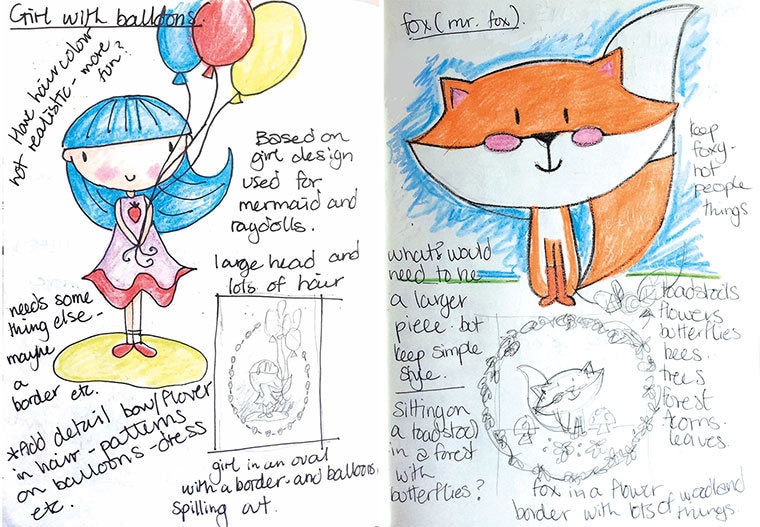 Girl with balloons.
Have hair colour
not realistic - more
fun?
Based on
girl design
used for
mermaid and
ragdolls.
large head and
lots of hair
needs some
thing else -
maybe
a
border etc.
*Add detail bow/flower
in hair - patterns
on balloons - dress
etc.
girl in an oval
with a border - and balloons
spilling out.
fox (mr. fox).
keep
foxy -
not
people
things
whats would
need to be
a larger
piece. but
keep simple
style.
sitting on
a toadstool
in a forest
with
butterflies?
toadstools
flowers
butterflies
bees.
trees
forest
acorns.
leaves.
fox in a flower
border with lots of woodland
things.